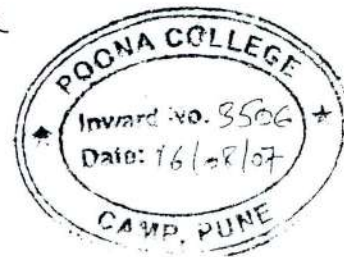 POONA COLLEGE
Inward No. 3506
Date: 16/08/07
CAMP, PUNE